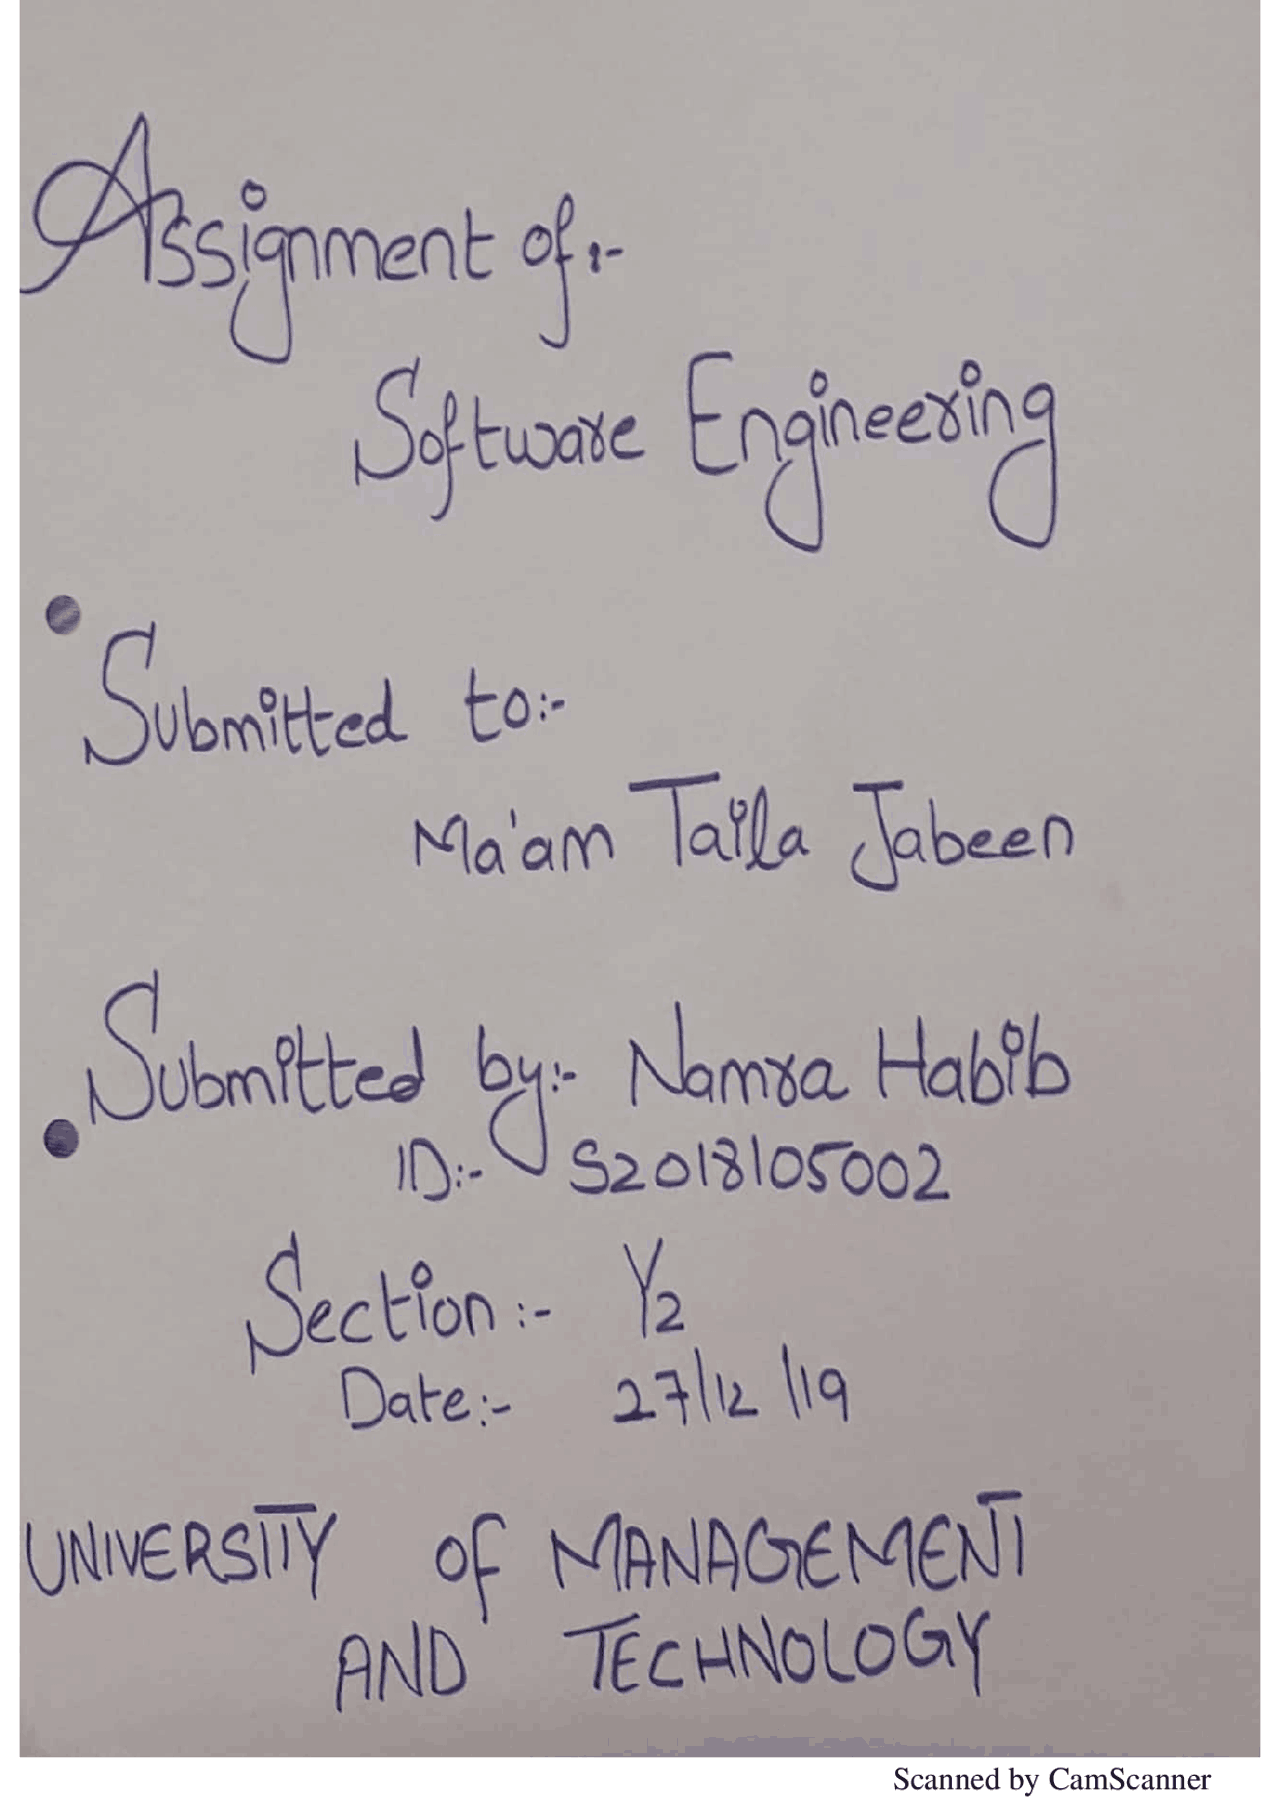 Assignment of:-
Software Engineering
Submitted to:-
Ma'am Taila Jabeen
Submitted by:- Namra Habib
ID:- S2018105002
Section:- Y2
Date:- 27/12/19
UNIVERSITY of MANAGEMENT
AND TECHNOLOGY
Scanned by CamScanner